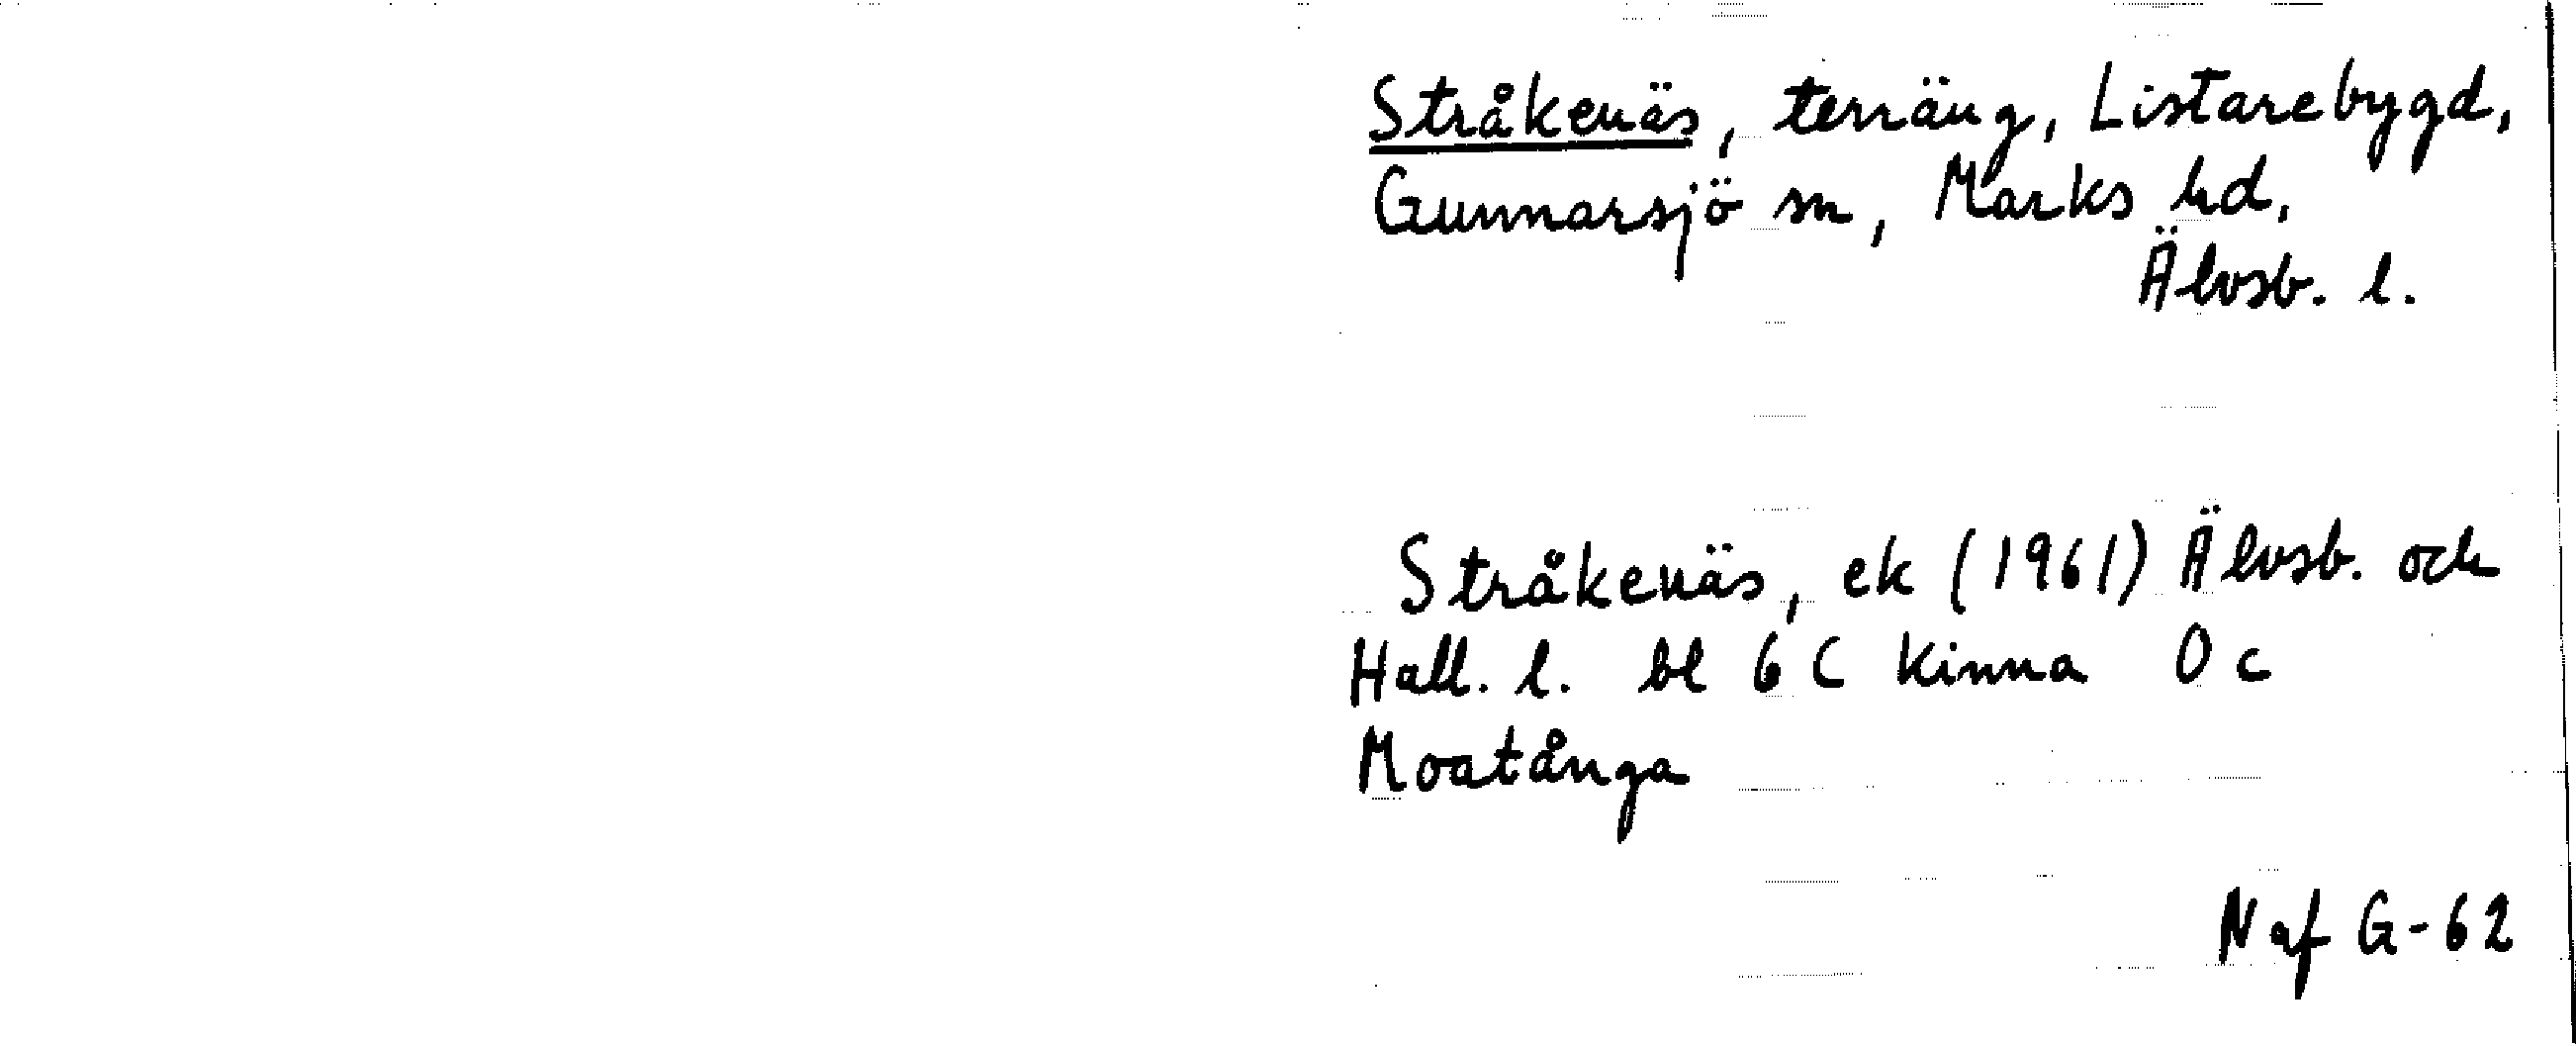 Stråkenäs, terräng, Listarebygd,
Gunnarsjö sn, Marks hd,
Älvsb. l.
Stråkenäs, ek (1961) Älvsb. och
Hall. l. bl 6 C Kinna 0 c
Moatånga
Naf G-62